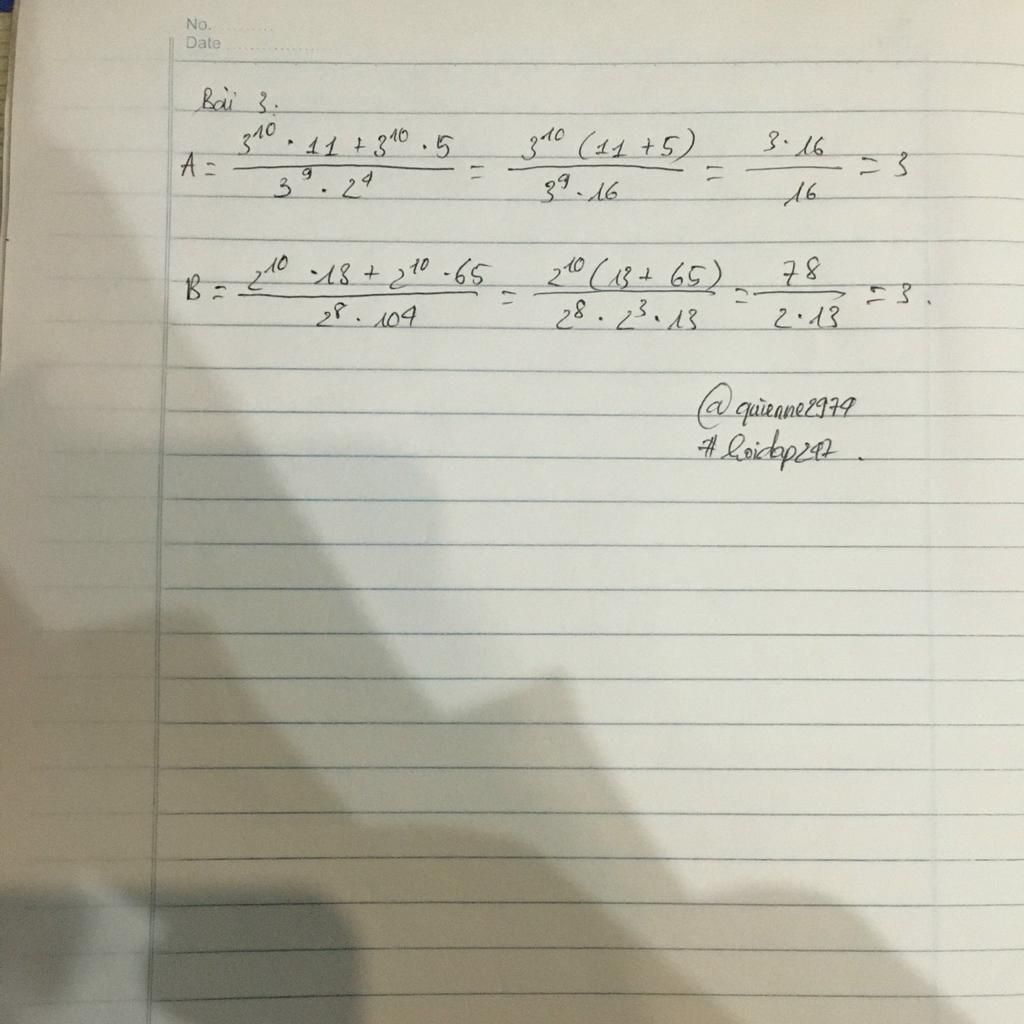 No. ..........
Date ..................
Bài 3:
A = \frac{3^{10} \cdot 11 + 3^{10} \cdot 5}{3^9 \cdot 2^4} = \frac{3^{10} (11 + 5)}{3^9 \cdot 16} = \frac{3 \cdot 16}{16} = 3
B = \frac{2^{10} \cdot 13 + 2^{10} \cdot 65}{2^8 \cdot 104} = \frac{2^{10} (13 + 65)}{2^8 \cdot 2^3 \cdot 13} = \frac{78}{2 \cdot 13} = 3.
@quienne2974
#hoidap247.